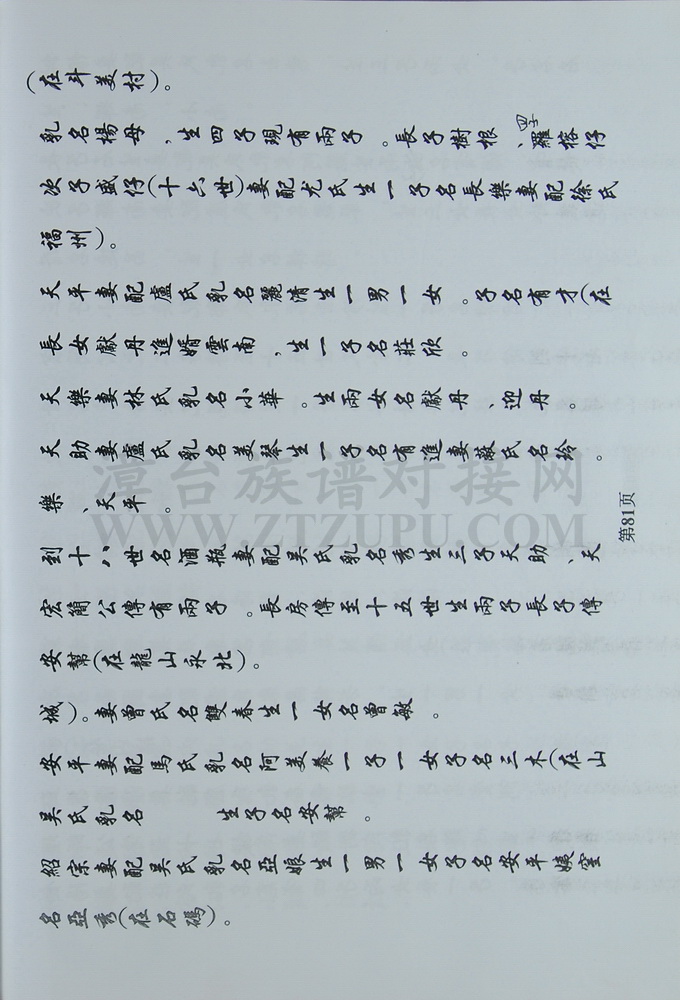 名亞秀(在石碼)。
紹宗妻配吳氏乳名亞娘生一男一女子名安平姨室
吳氏乳名　　　生子名安幫。
安平妻配馬氏乳名阿美養一子一女子名三木(在山
城)。妻曾氏名雙春生一女名曾敏。
安幫(在龍山永北)。
宏簡公傳有兩子。長房傳至十五世生兩子長子傳
到十八世名酒瓶妻配吳氏乳名秀生三子天助、天
樂、天平。
天助妻盧氏乳名美琴生一子名有進妻薇氏名玲。
天樂妻林氏乳名小華。生兩女名獻丹、迎丹。
長女獻丹進婿雲南,生一子名莊欣。
天平妻配盧氏乳名麗清生一男一女。子名有才(在
福州)。
次子盛仔(十六世)妻配尤氏生一子名長樂妻配徐氏
乳名楊母,生四子現有兩子。長子樹根、四子羅榕仔
(在斗美村)。
第81页
漳台族谱对接网
WWW.ZTZUPU.COM